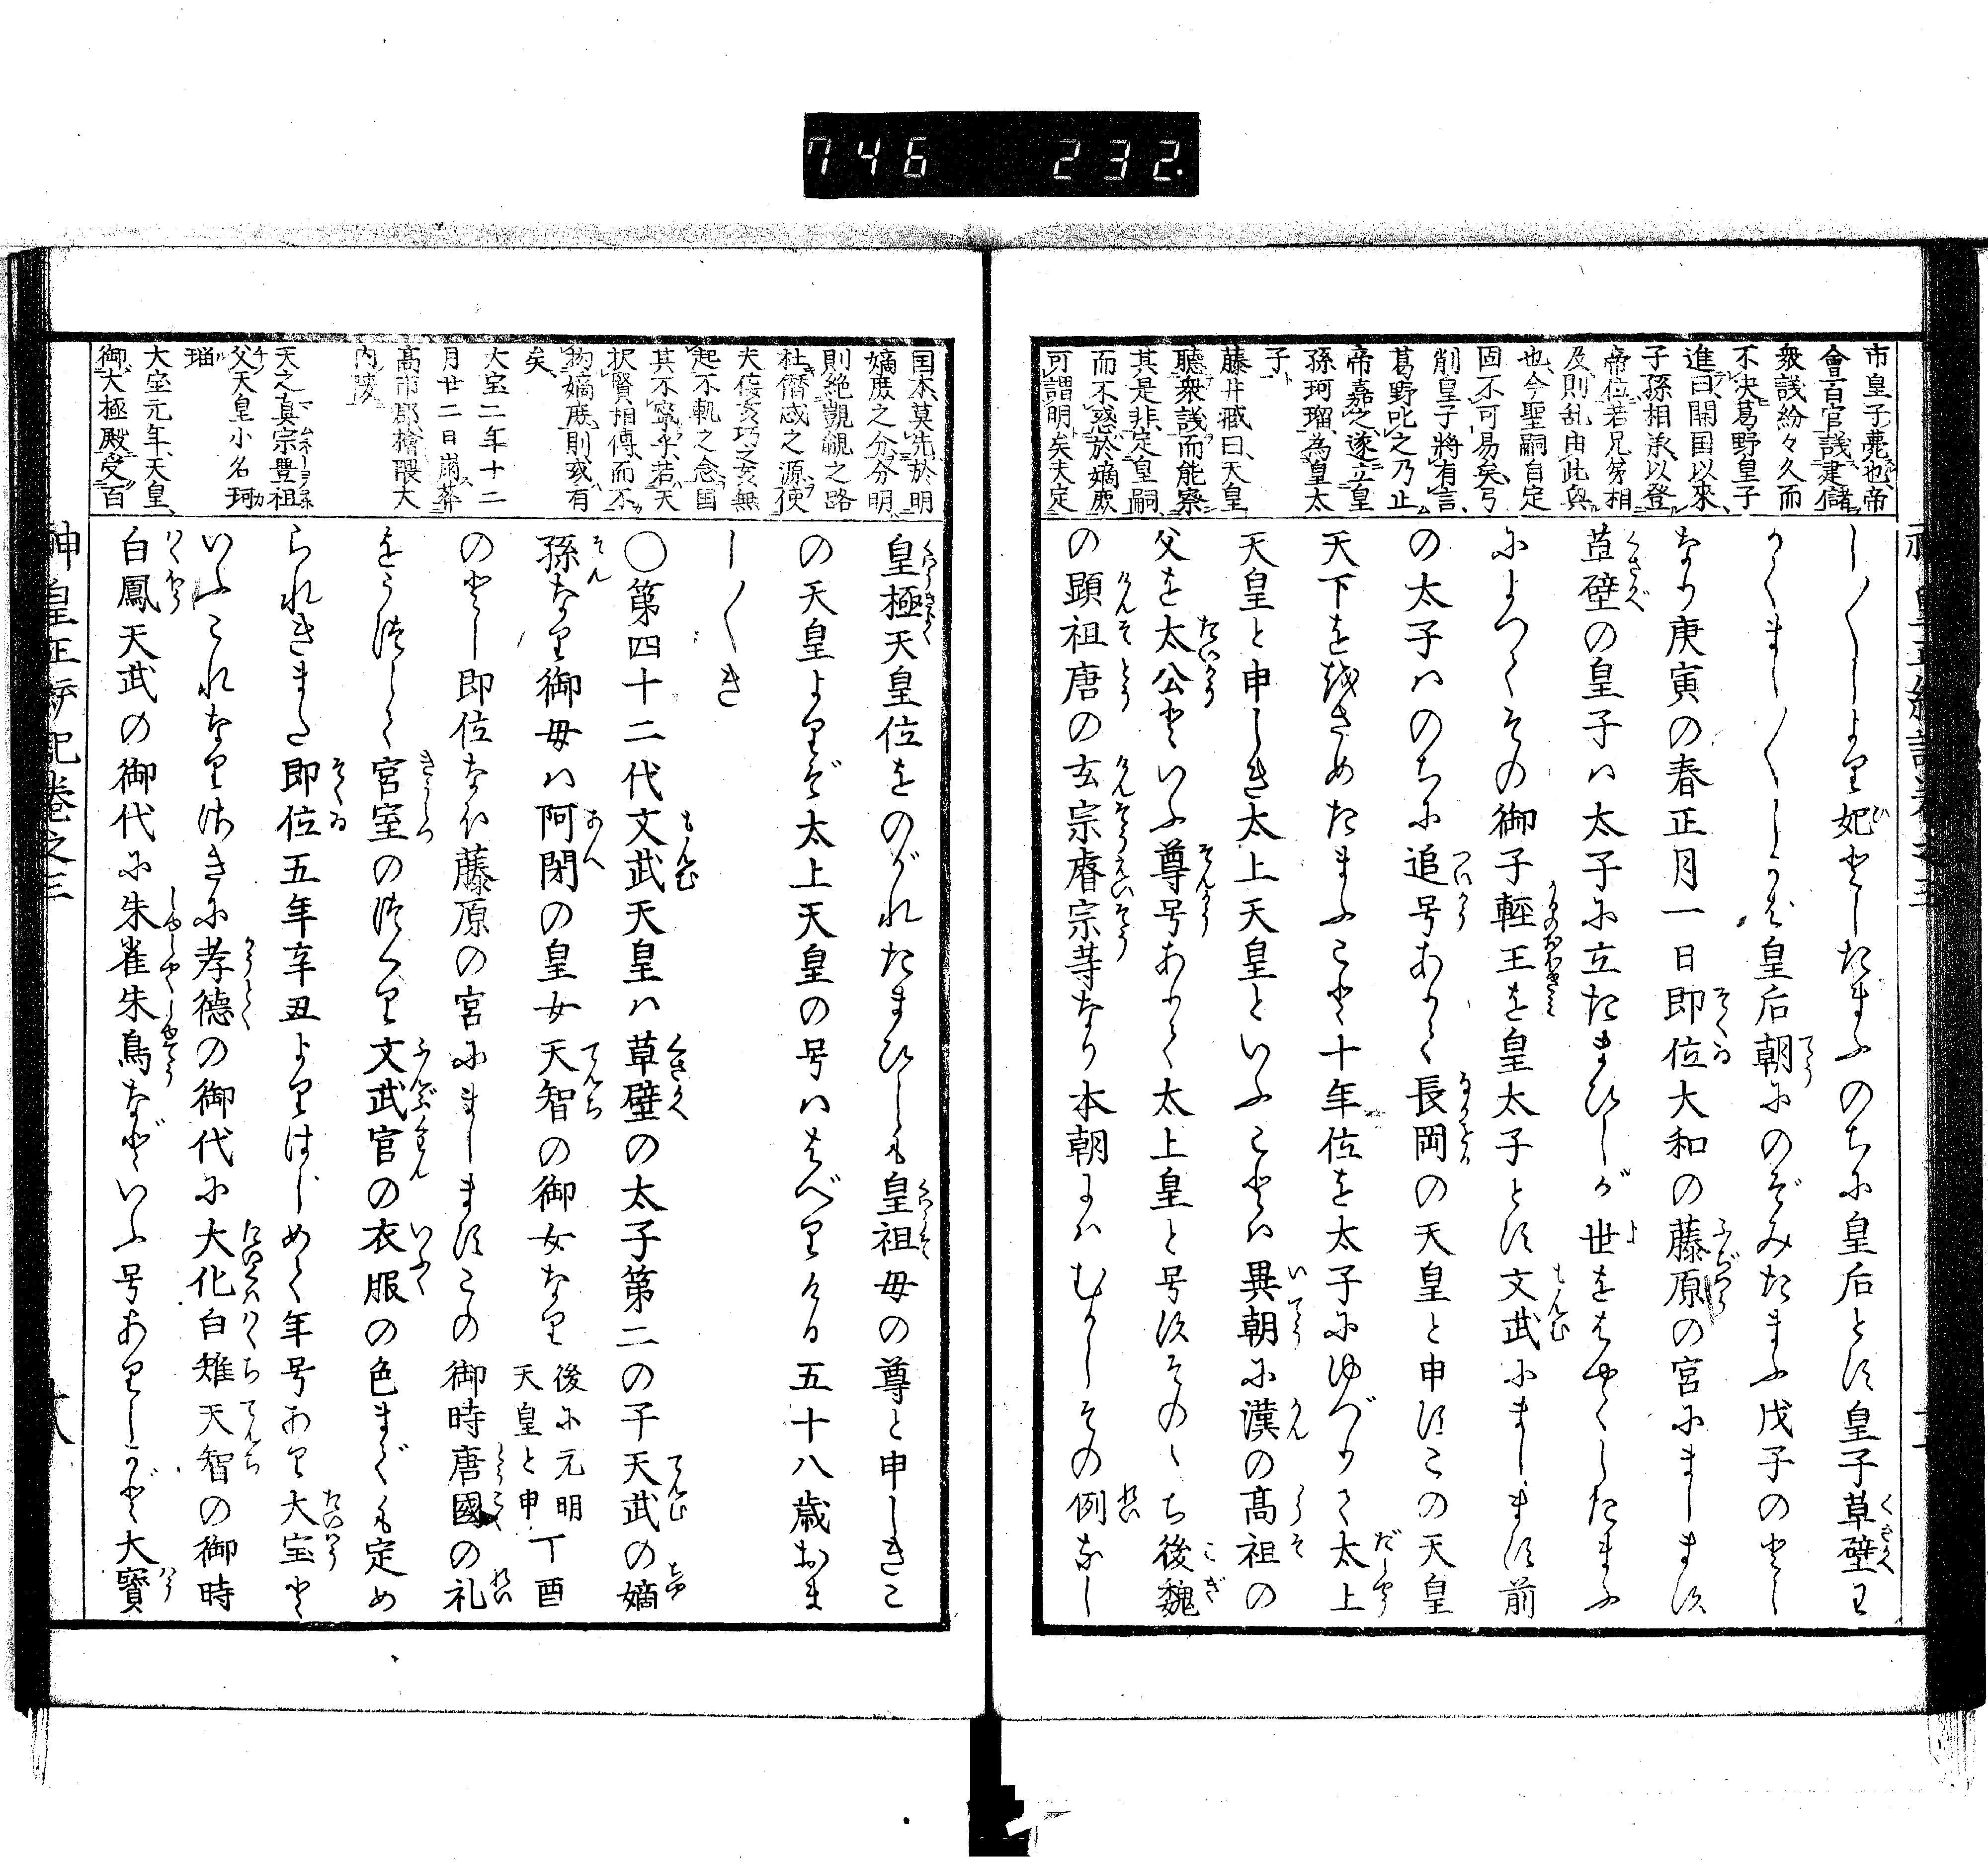 746 232.
市皇子薨也、帝
會百官議建儲
衆議紛々久而
不決葛野皇子
進曰、開国以來、
子孫相承、以登
帝位若兄弟相
及、則乱由此與
也、今聖嗣自定
固不可易矣、弓
削皇子將有言、
葛野叱之乃止
帝嘉之、遂立皇
孫珂瑠、為皇太
子
藤井臧曰、天皇
聽衆議而能察
其是非、定皇嗣
而不惑於嫡庶
可謂明矣夫定
し〳〵しより妃としたまふのちに皇后とす皇子草壁わ
かくまし〳〵しかば皇后朝にのぞみたまふ戊子のとし
なり庚寅の春正月一日即位大和の藤原の宮にまします
草壁の皇子ハ太子に立たまひしが世をはやくしたまふ
によつてその御子軽王を皇太子とす文武にまします前
の太子ハのちに追号ありて長岡の天皇と申すこの天皇
天下をおさめたまふこと十年位を太子にゆづりて太上
天皇と申しき太上天皇といふことハ異朝に漢の高祖の
父を太公といふ尊号ありて太上皇と号すそのゝち後魏
の顕祖唐の玄宗睿宗等なり本朝にハむかしその例なし
国本、莫先於明
嫡庶之分、分明、
則絶覬覦之路
杜僭惑之源、使
夫佞姦巧之女無
起不軌之念、国
其不寧乎、若夫
択賢相傳、而不
拘嫡庶、則或有
矣、
大宝二年十二
月廿二日崩葬
高市郡、檜隈大
内陵
天之真宗豊祖
父天皇小名珂
瑠
大宝元年、天皇、
御大極殿受百
皇極天皇位をのがれたまひしも皇祖母の尊と申しきこ
の天皇よりぞ太上天皇の号ハはべりける五十八歳おま
し〳〵き
〇第四十二代文武天皇ハ草壁の太子第二の子天武の嫡
孫なり御母ハ阿閇の皇女天智の御女なり後に元明天皇と申丁酉
のとし即位なほ藤原の宮にましますこの御時唐國の礼
をうつして宮室のつくり文武官の衣服の色までも定め
られきまた即位五年辛丑よりはじめて年号あり大宝と
いふこれなりさきに孝徳の御代に大化白雉天智の御時
白鳳天武の御代に朱雀朱鳥などいふ号ありしかど大寳
神皇正統記巻之三